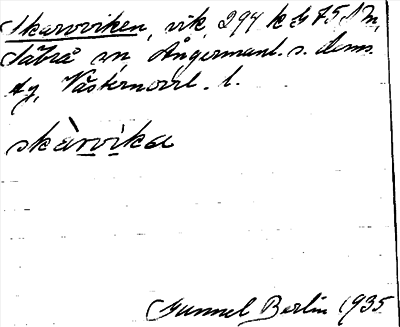 Skarvviken, vik, 294 k
Säbrå sn, Ångermanl. s. doms.
Västernorrl. l.
skàrvika
Gunnel Berlin 1935